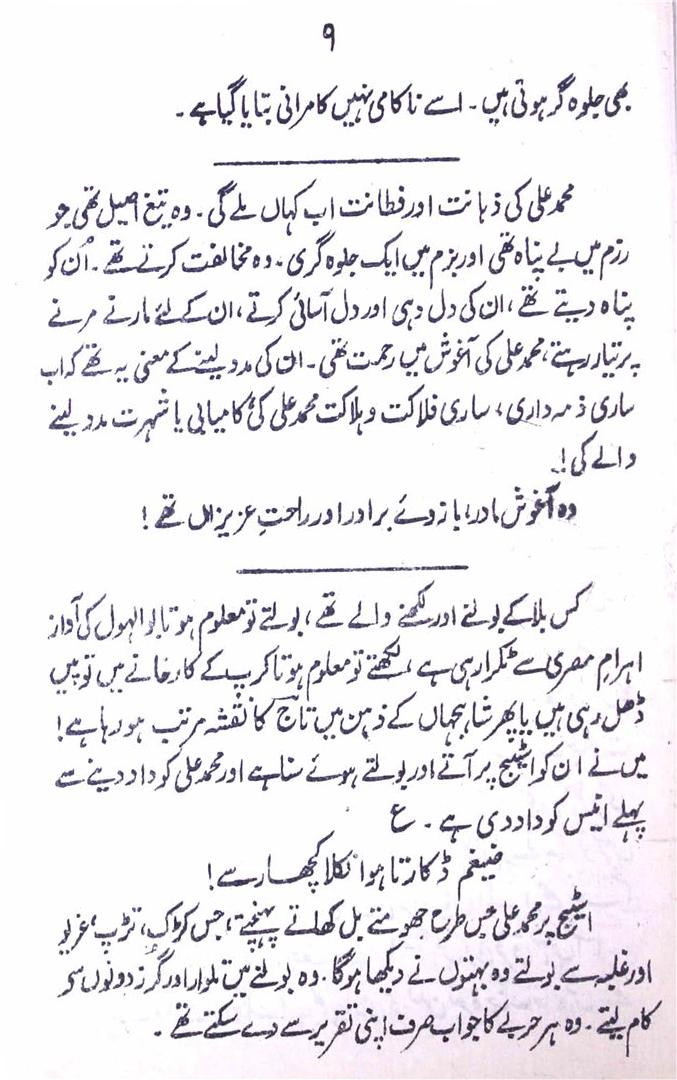 ۹
بھی جلوہ گر ہوتی ہیں۔ اسے ناکامی نہیں کامرانی بتایا گیا ہے۔
محمد علی کی ذہانت اور فطانت اب کہاں ملے گی۔ وہ تیغ اصیل تھی جو
رزم میں بے پناہ تھی اور بزم میں ایک جلوہ گری۔ وہ مخالفت کرتے تھے۔ اُن کو
پناہ دیتے تھے، ان کی دل دہی اور دل آسائی کرتے، ان کے لئے مارنے مرنے
پر تیار رہتے، محمد علی کی آغوش میں رحمت تھی۔ ان کی مدد لینے کے معنی یہ تھے کہ اب
ساری ذمہ داری، ساری فلاکت و ہلاکت محمد علی کی کامیابی یا شہرت مدد لینے
والے کی!
وہ آغوش مادر، بازوئے برادر اور راحتِ عزیزاں تھے!
کس بلا کے بولنے اور لکھنے والے تھے، بولتے تو معلوم ہوتا ابوالہول کی آواز
اہرام مصری سے ٹکرا رہی ہے، لکھتے تو معلوم ہوتا کرپ کے کارخانے میں توپیں
ڈھل رہی ہیں یا پھر شاہجہاں کے ذہن میں تاج کا نقشہ مرتب ہو رہا ہے!
میں نے ان کو اسٹیج پر آتے اور بولتے ہوئے سنا ہے اور محمد علی کو داد دینے سے
پہلے انیس کو داد دی ہے۔ ع
ضیغم ڈکارتا ہوا نکلا کچھار سے!
اسٹیج پر محمد علی جس طرح جھومتے بل کھاتے پہنچتے، جس کڑک، تڑپ، غریو
اور غلبہ سے بولتے وہ بہتوں نے دیکھا ہوگا۔ وہ بولنے میں تلوار اور گرز دونوں سے
کام لیتے۔ وہ ہر حربے کا جواب صرف اپنی تقریر سے دے سکتے تھے۔